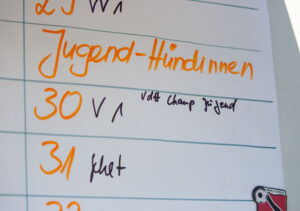 29 V1
Jugend-Hündinnen
30 V1 VDH Champ Jugend
31 fehlt
32